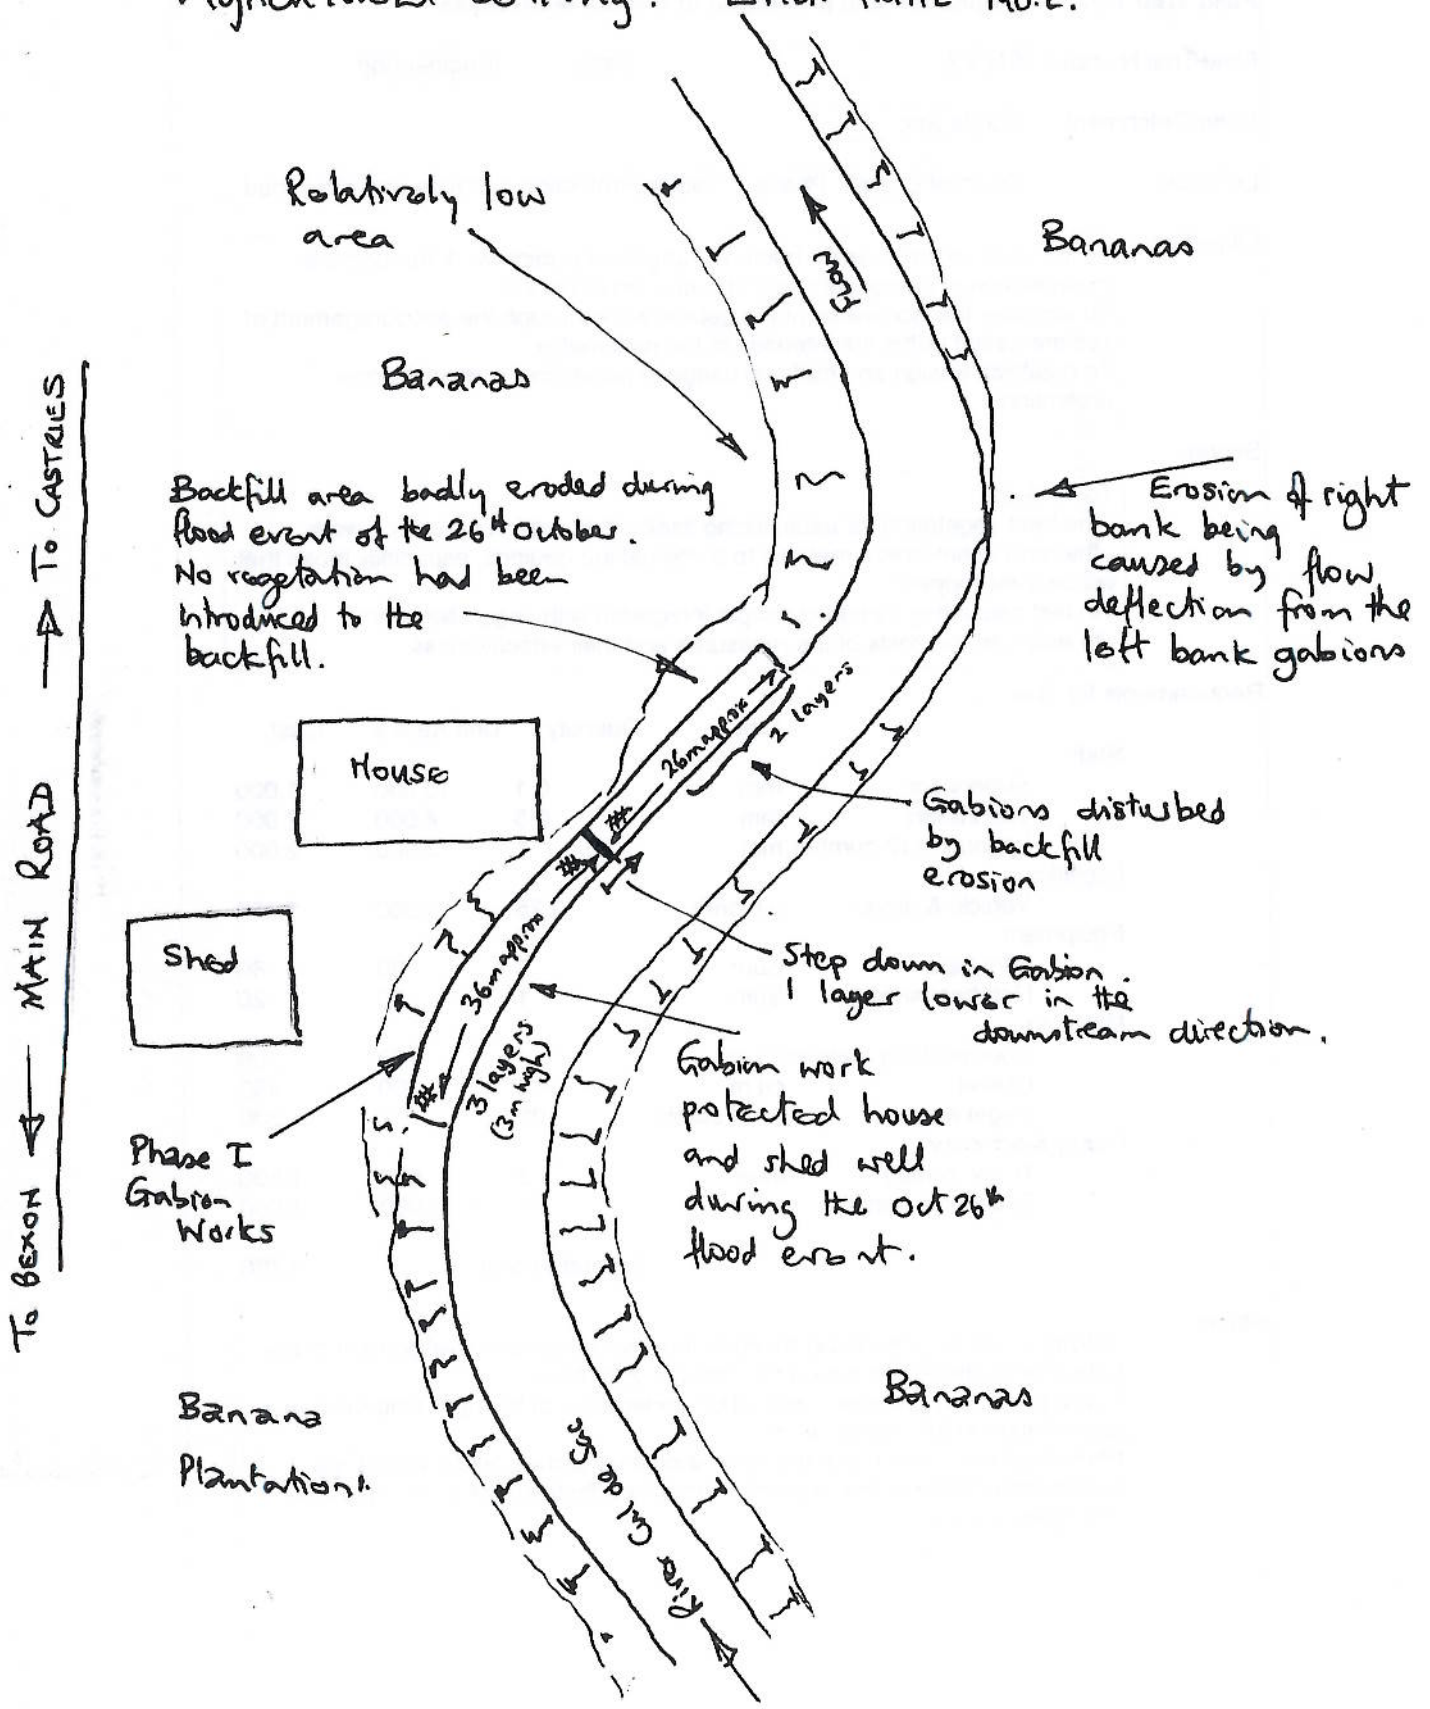 Relatively low
area
Bananas
Flow
Bananas
Backfill area badly eroded during
flood event of the 26th October.
No vegetation had been
introduced to the
backfill.
Erosion of right
bank being
caused by flow
deflection from the
left bank gabions
26m approx
2 layers
House
Gabions disturbed
by backfill
erosion
Shed
36m approx
3 layers
(3m high)
Step down in Gabion.
1 layer lower in the
downstream direction.
Gabion work
protected house
and shed well
during the Oct 26th
flood event.
Phase I
Gabion
Works
To BEXON ← MAIN ROAD → To CASTRIES
Banana
Plantation.
Bananas
River Cul de Sac